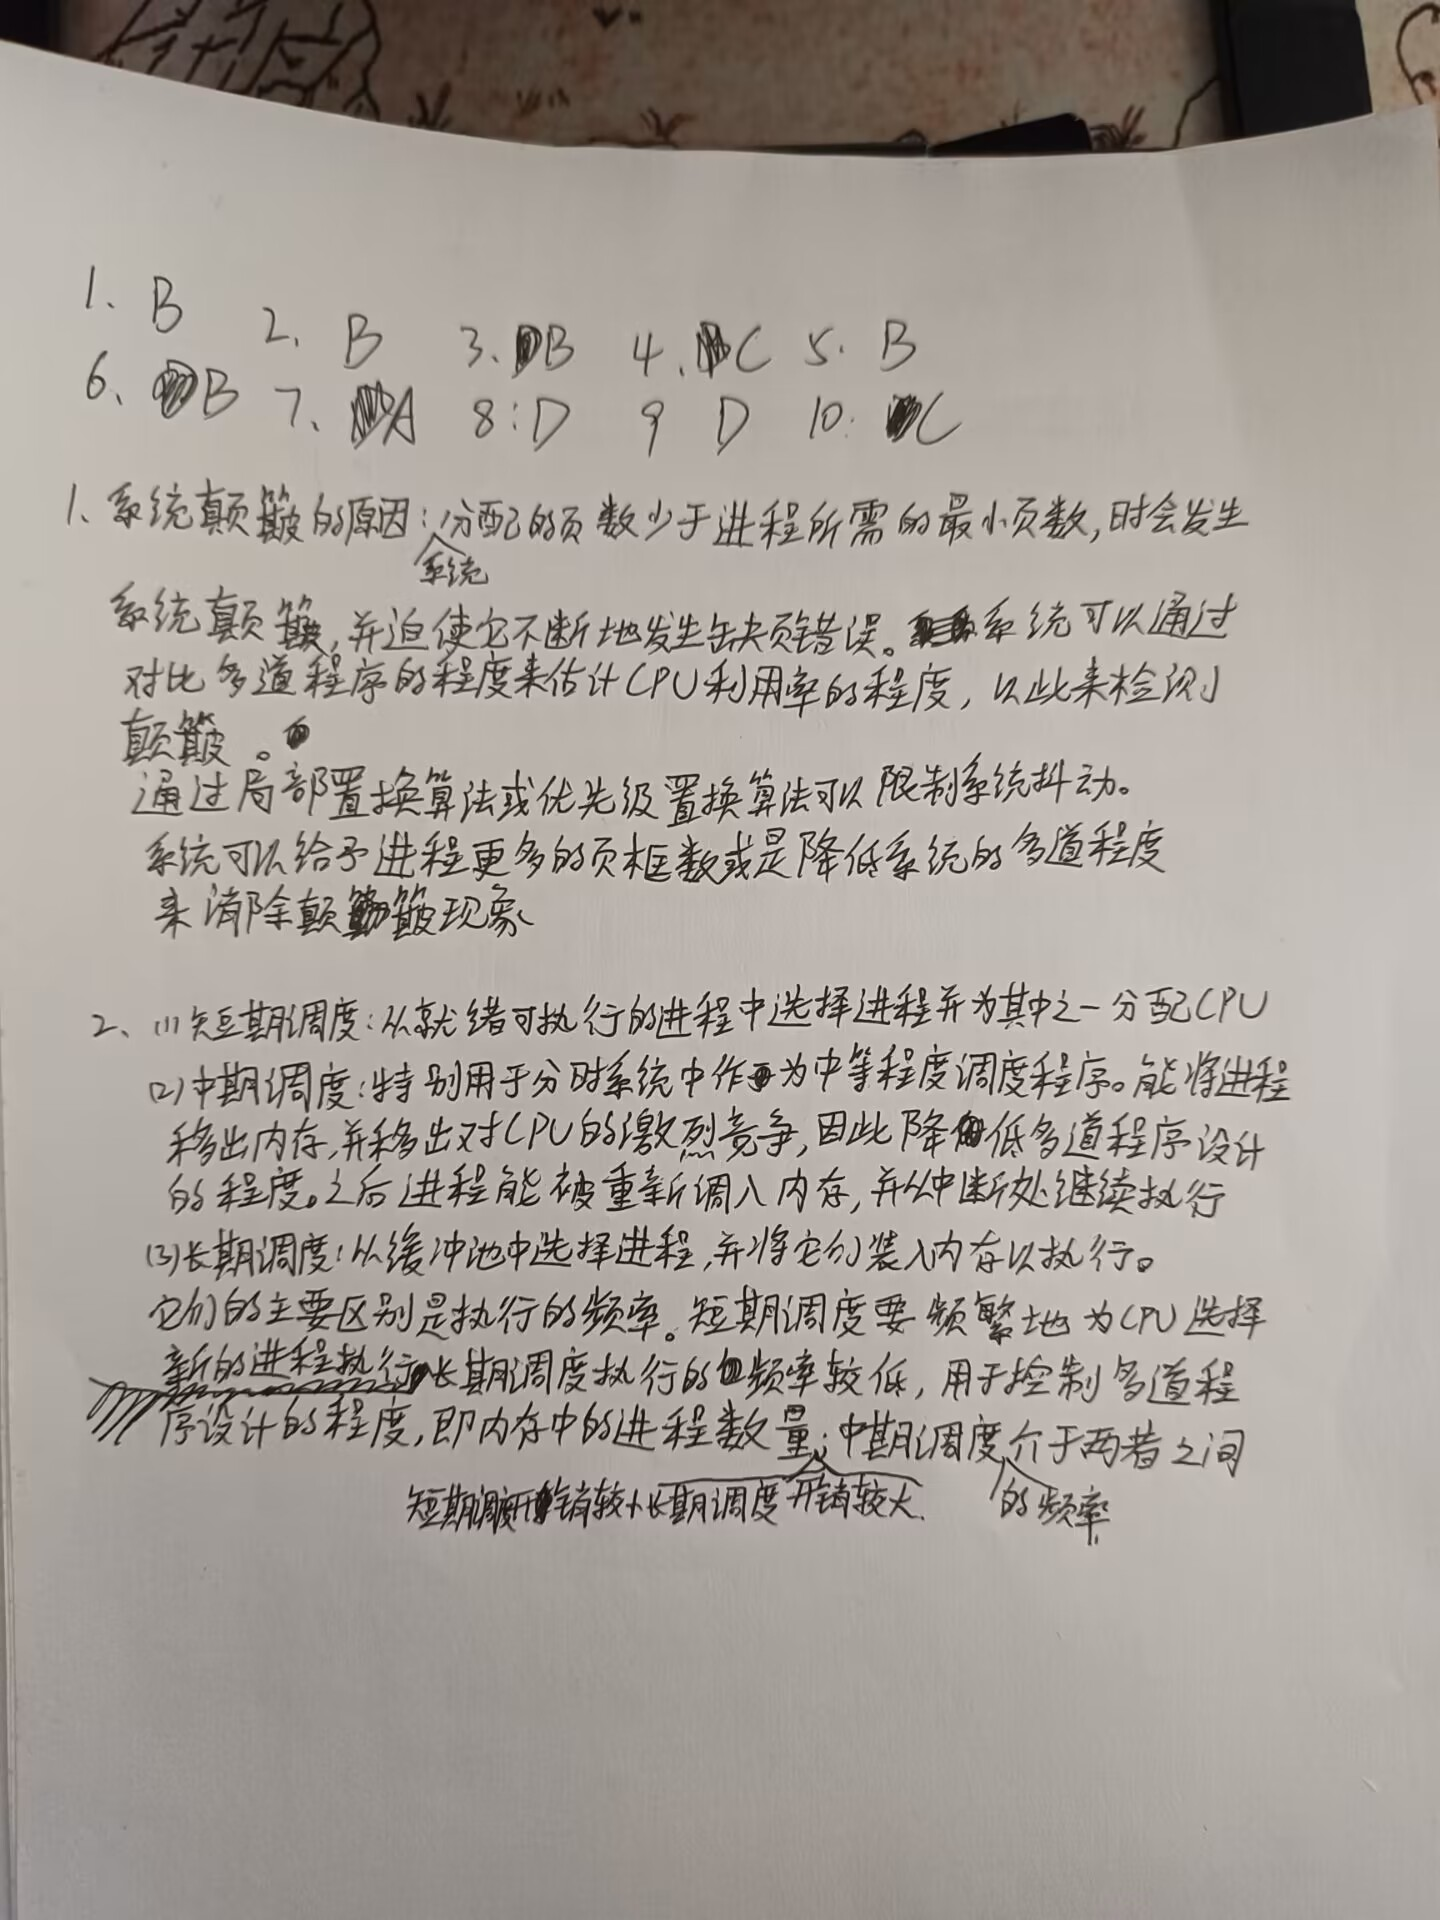 1、B 2、B 3、B 4、C 5、B
6、B 7、A 8:D 9 D 10:C
1、系统颠簸的原因:系统分配的页数少于进程所需的最小页数,时会发生
系统颠簸,并迫使它不断地发生缺页错误。系统可以通过
对比多道程序的程度来估计CPU利用率的程度,以此来检测
颠簸。
通过局部置换算法或优先级置换算法可以限制系统抖动。
系统可以给予进程更多的页框数或是降低系统的多道程度
来消除颠簸现象
2、(1)短期调度:从就绪可执行的进程中选择进程并为其中之一分配CPU
(2)中期调度:特别用于分时系统中作为中等程度调度程序。能将进程
移出内存,并移出对CPU的激烈竞争,因此降低多道程序设计
的程度。之后进程能被重新调入内存,并从中断处继续执行
(3)长期调度:从缓冲池中选择进程,并将它们装入内存以执行。
它们的主要区别是执行的频率。短期调度要频繁地为CPU选择
新的进程执行长期调度执行的频率较低,用于控制多道程
序设计的程度,即内存中的进程数量;中期调度的频率介于两者之间
短期调度开销较小长期调度开销较大.